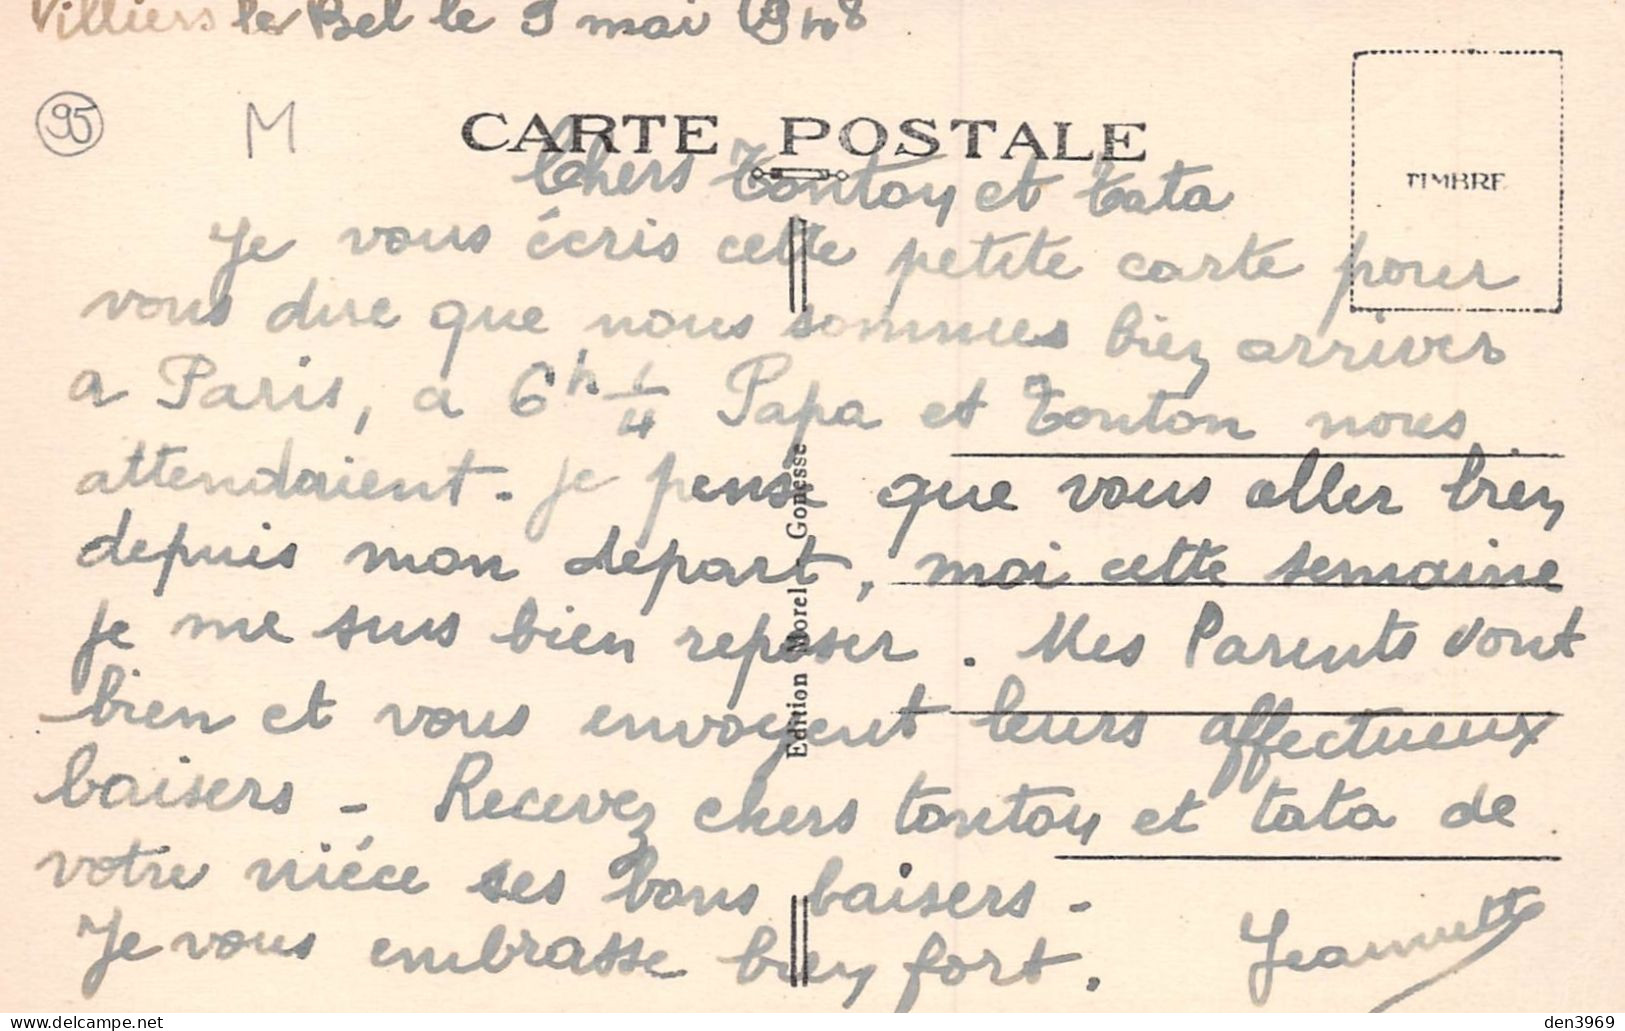 Villiers le Bel le 9 mai 1948
95 M
CARTE POSTALE
TIMBRE
Chers Tonton et Tata
Je vous écris cette petite carte pour
vous dire que nous sommes bien arriver
a Paris, a 6h 1/4 Papa et Tonton nous
attendaient - je pense que vous aller bien
depuis mon depart, moi cette semaine
je me suis bien reposer. Mes Parents vont
bien et vous envoyent leurs affectueux
baisers - Recevez chers tonton et tata de
votre niéce ses bons baisers -
Je vous embrasse bien fort. Jeannette
Edition Morel Gonesse
den3969